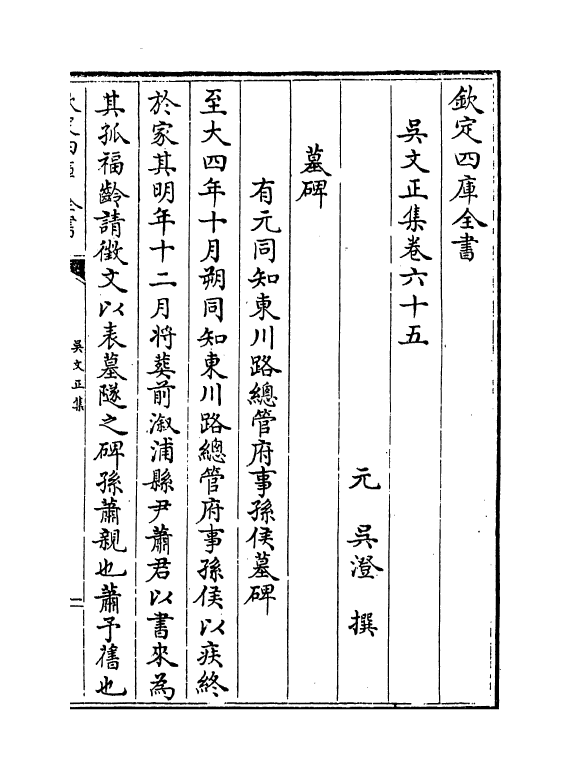 欽定四庫全書
吳文正集卷六十五
元 吳澄 撰
墓碑
有元同知東川路總管府事孫侯墓碑
至大四年十月朔同知東川路總管府事孫侯以疾終
於家其明年十二月將葬前溆浦縣尹蕭君以書來為
其孤福齡請徵文以表墓隧之碑孫蕭親也蕭予舊也
欽定四庫全書
吳文正集